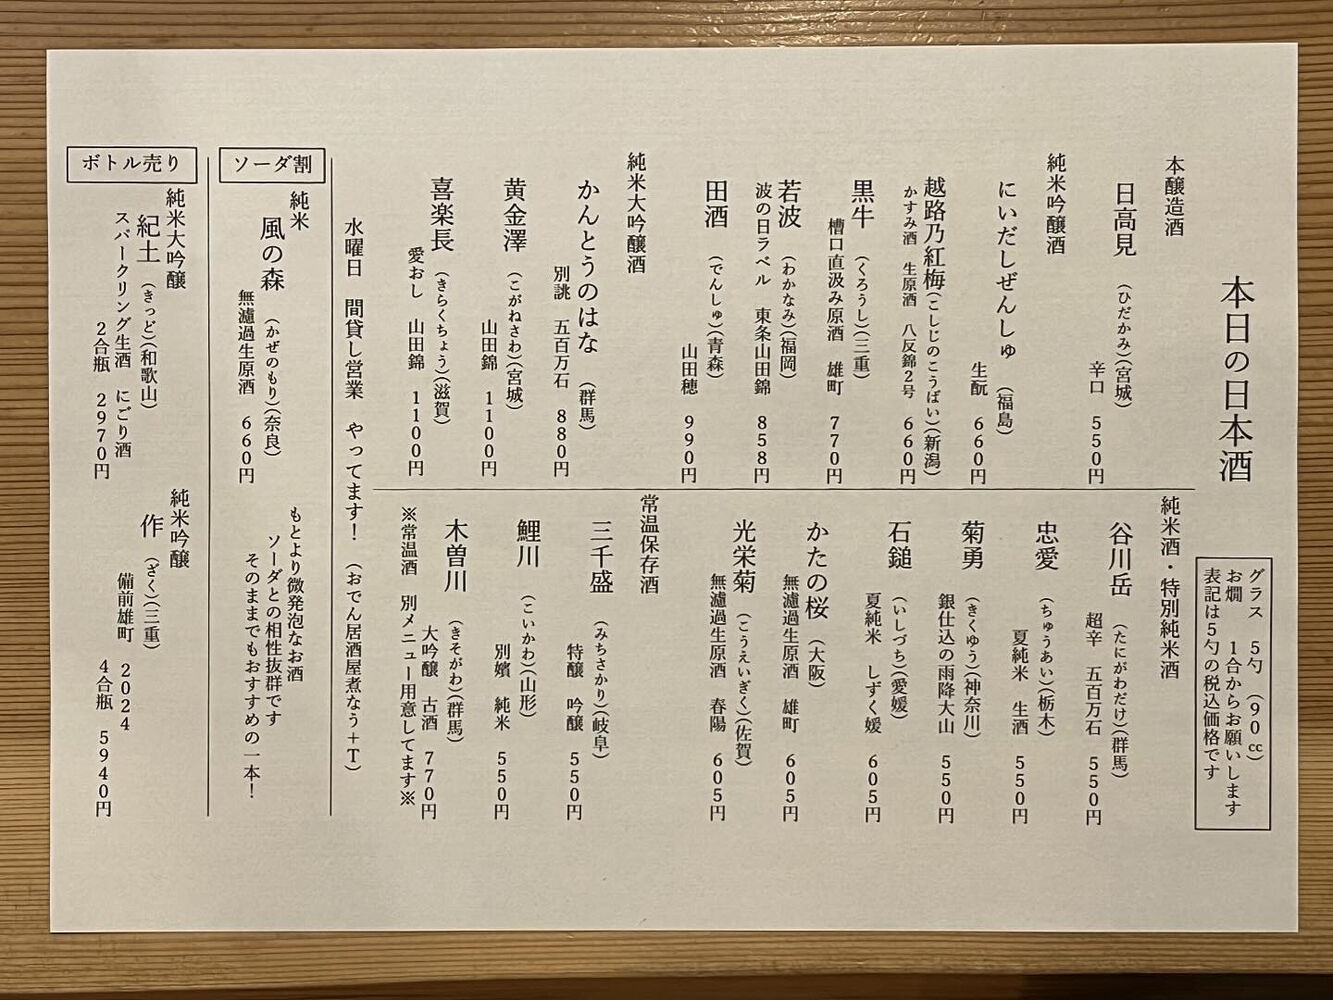 本日の日本酒
グラス 5勺 (90㏄)
お燗 1合からお願いします
表記は5勺の税込価格です
本醸造酒
日高見 (ひだかみ)(宮城)
辛口 550円
純米吟醸酒
にいだしぜんしゅ (福島)
生酛 660円
越路乃紅梅(こしじのこうばい)(新潟)
かすみ酒 生原酒 八反錦2号 660円
黒牛 (くろうし)(三重)
槽口直汲み原酒 雄町 770円
若波 (わかなみ)(福岡)
波の日ラベル 東条山田錦 858円
田酒 (でんしゅ)(青森)
山田穂 990円
純米大吟醸酒
かんとうのはな (群馬)
別誂 五百万石 880円
黄金澤 (こがねさわ)(宮城)
山田錦 1100円
喜楽長 (きらくちょう)(滋賀)
愛おし 山田錦 1100円
純米酒・特別純米酒
谷川岳 (たにがわだけ)(群馬)
超辛 五百万石 550円
忠愛 (ちゅうあい)(栃木)
夏純米 生酒 550円
菊勇 (きくゆう)(神奈川)
銀仕込の雨降大山 550円
石鎚 (いしづち)(愛媛)
夏純米 しずく媛 605円
かたの桜 (大阪)
無濾過生原酒 雄町 605円
光栄菊 (こうえいぎく)(佐賀)
無濾過生原酒 春陽 605円
常温保存酒
三千盛 (みちさかり)(岐阜)
特醸 吟醸 550円
鯉川 (こいかわ)(山形)
別嬪 純米 550円
木曽川 (きそがわ)(群馬)
大吟醸 古酒 770円
※常温酒 別メニュー用意してます※
水曜日 間貸し営業 やってます! (おでん居酒屋煮なう+T)
ソーダ割
純米
風の森 (かぜのもり)(奈良)
無濾過生原酒 660円
もとより微発泡なお酒
ソーダとの相性抜群です
そのままでもおすすめの一本!
ボトル売り
純米大吟醸
紀土 (きっど)(和歌山)
スパークリング生酒 にごり酒
2合瓶 2970円
純米吟醸
作 (ざく)(三重)
備前雄町 2024
4合瓶 5940円